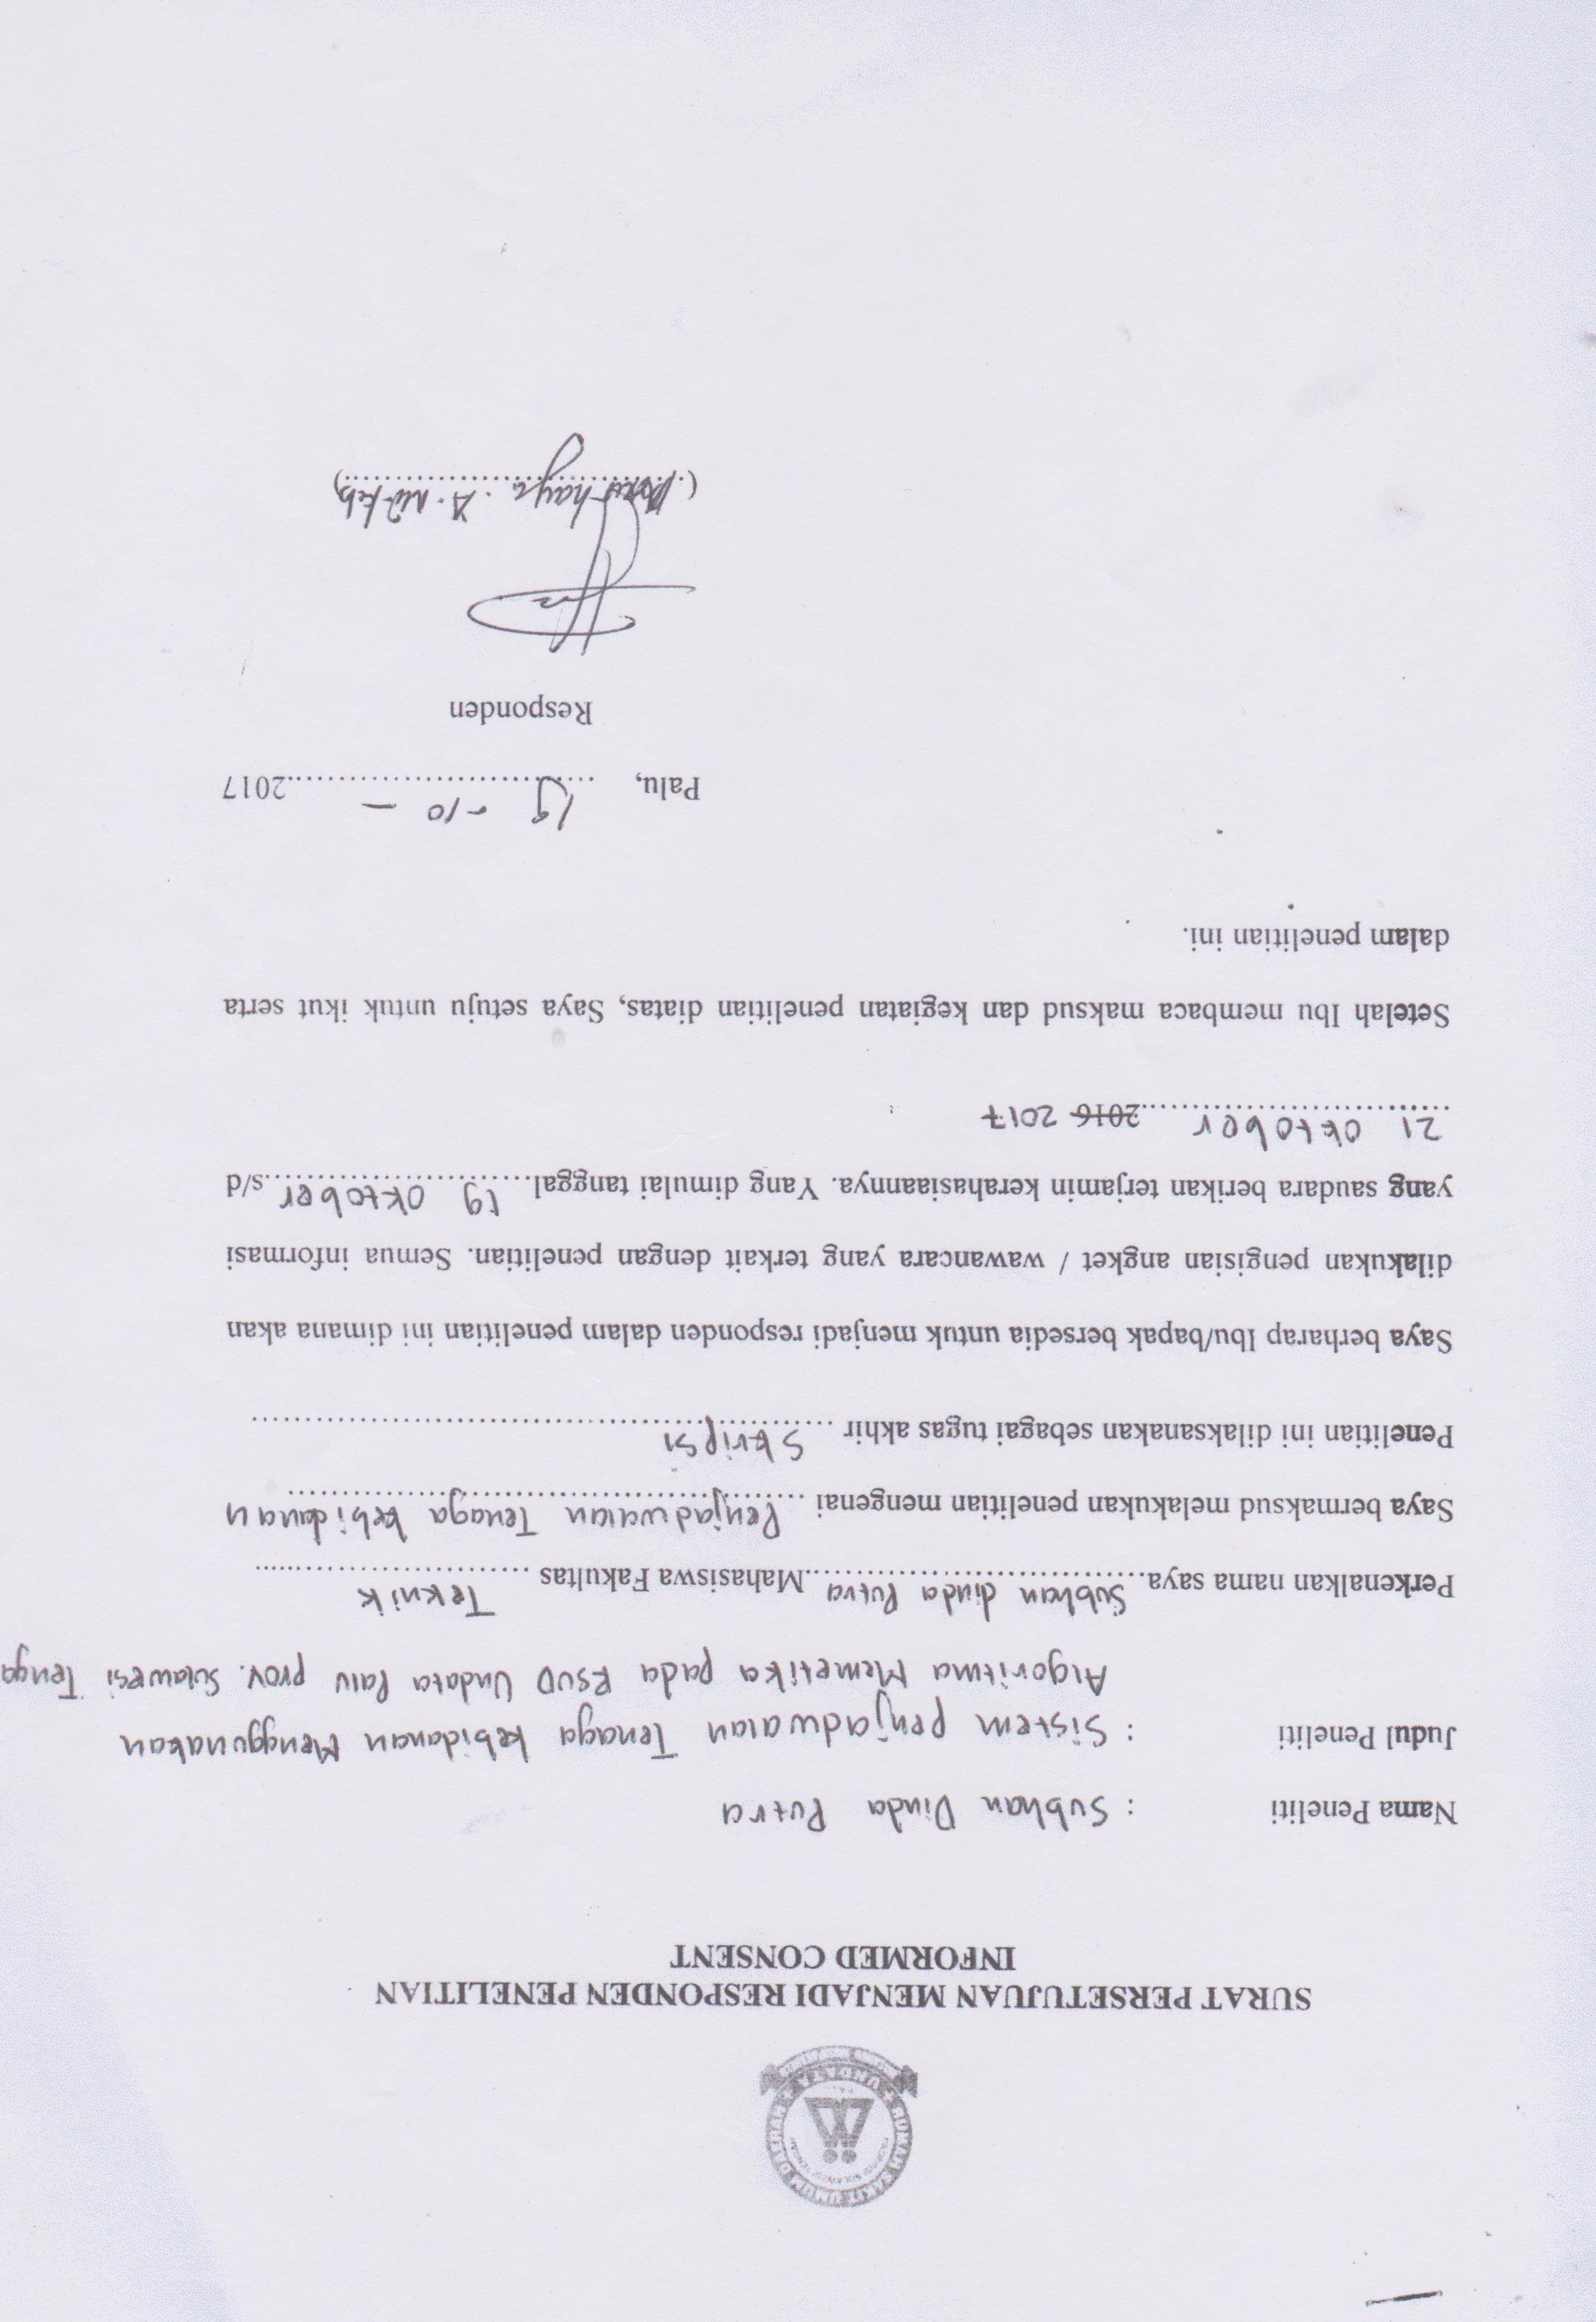 RUMAH SAKIT UMUM DAERAH
UNDATA
SURAT PERSETUJUAN MENJADI RESPONDEN PENELITIAN
INFORMED CONSENT
Nama Peneliti : Subhan Dinda Putra
Judul Peneliti : Sistem Penjadwalan Tenaga kebidanan Menggunakan
Algoritma Memetika pada RSUD Undata Palu Prov. Sulawesi Tenga
Perkenalkan nama saya Subhan dinda Putra Mahasiswa Fakultas Teknik
Saya bermaksud melakukan penelitian mengenai Penjadwalan Tenaga kebidanan
Penelitian ini dilaksanakan sebagai tugas akhir Skripsi
Saya berharap Ibu/bapak bersedia untuk menjadi responden dalam penelitian ini dimana akan
dilakukan pengisian angket / wawancara yang terkait dengan penelitian. Semua informasi
yang saudara berikan terjamin kerahasiaannya. Yang dimulai tanggal 19 Oktober s/d
21 Oktober 2016 2017
Setelah Ibu membaca maksud dan kegiatan penelitian diatas, Saya setuju untuk ikut serta
dalam penelitian ini.
Palu, 19 -10 - 2017
Responden